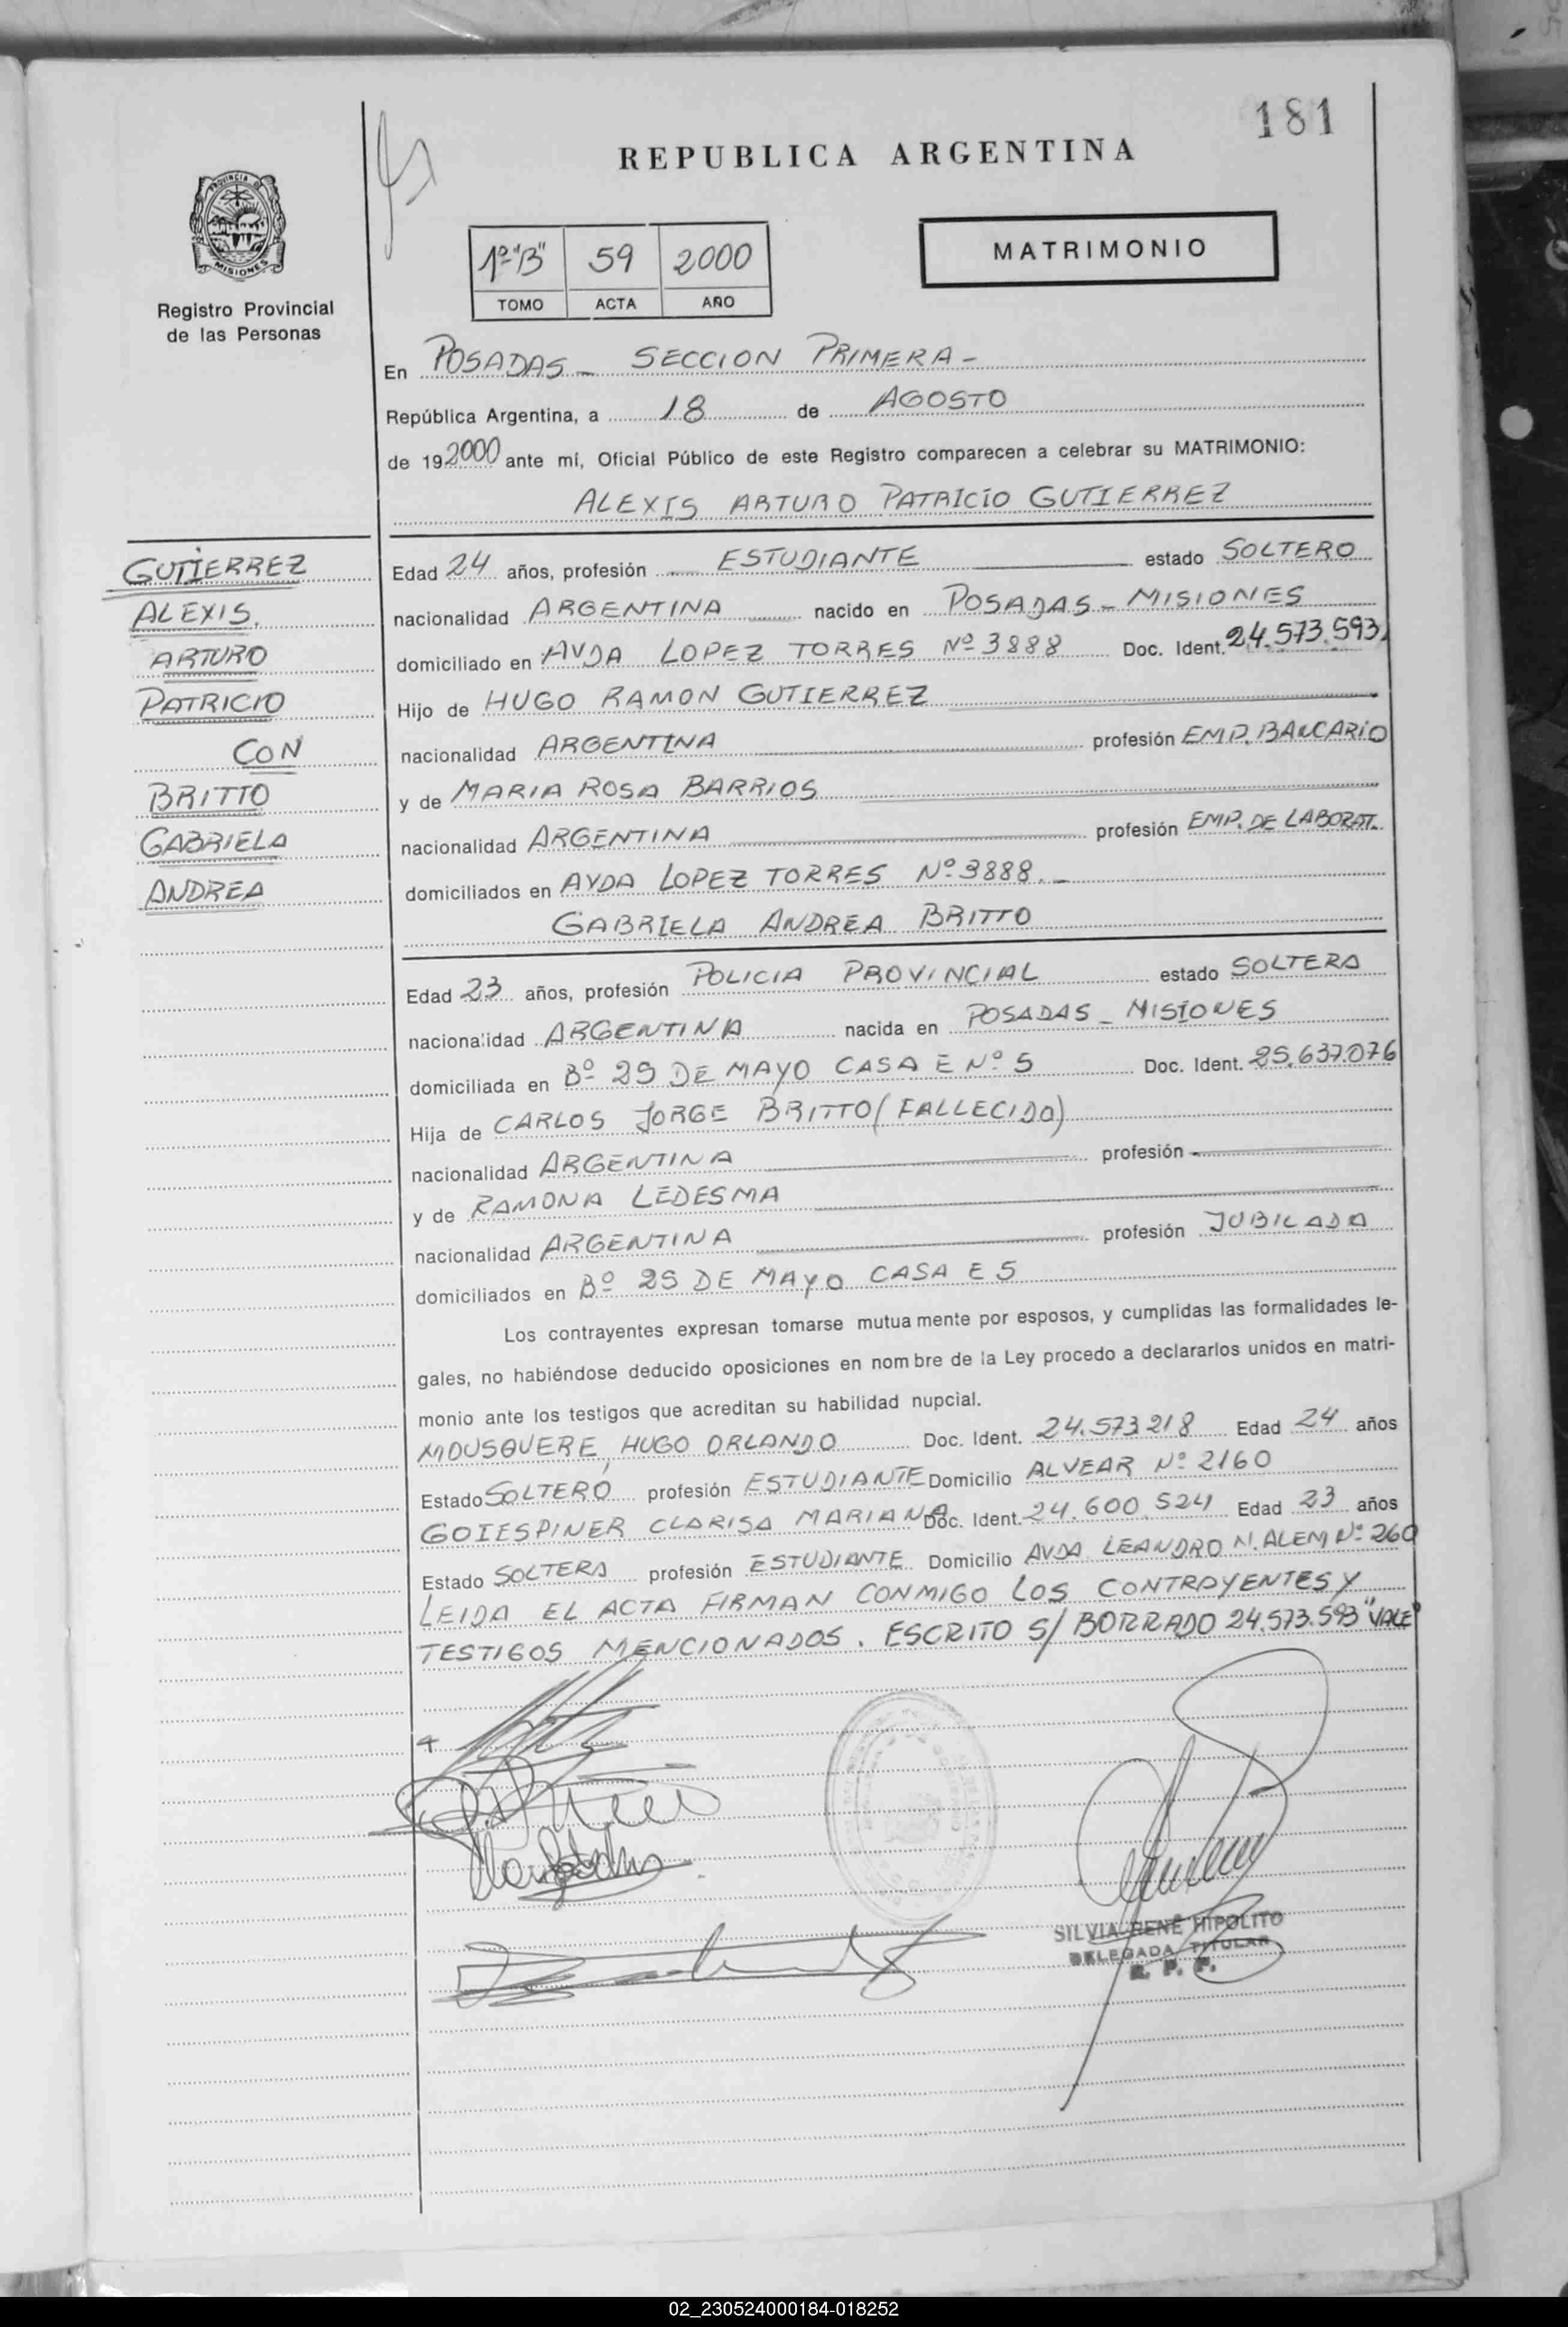 181
REPUBLICA ARGENTINA
PROVINCIA DE
MISIONES
Registro Provincial
de las Personas
1º "B" 59 2000
TOMO ACTA AÑO
MATRIMONIO
En POSADAS - SECCION PRIMERA -
República Argentina, a 18 de AGOSTO
de 192000 ante mí, Oficial Público de este Registro comparecen a celebrar su MATRIMONIO:
ALEXIS ARTURO PATRICIO GUTIERREZ
GUTIERREZ
ALEXIS,
ARTURO
PATRICIO
CON
BRITTO
GABRIELA
ANDREA
Edad 24 años, profesión ESTUDIANTE estado SOLTERO
nacionalidad ARGENTINA nacido en POSADAS - MISIONES
domiciliado en AVDA LOPEZ TORRES Nº 3888 Doc. Ident. 24.573.593
Hijo de HUGO RAMON GUTIERREZ
nacionalidad ARGENTINA profesión EMP. BANCARIO
y de MARIA ROSA BARRIOS
nacionalidad ARGENTINA profesión EMP. DE LABORAT.
domiciliados en AVDA LOPEZ TORRES Nº 3888. -
GABRIELA ANDREA BRITTO
Edad 23 años, profesión POLICIA PROVINCIAL estado SOLTERA
nacionalidad ARGENTINA nacida en POSADAS - MISIONES
domiciliada en Bº 25 DE MAYO CASA E Nº 5 Doc. Ident. 25.637.076
Hija de CARLOS JORGE BRITTO (FALLECIDO)
nacionalidad ARGENTINA profesión
y de RAMONA LEDESMA
nacionalidad ARGENTINA profesión JUBILADA
domiciliados en Bº 25 DE MAYO CASA E 5
Los contrayentes expresan tomarse mutuamente por esposos, y cumplidas las formalidades le-
gales, no habiéndose deducido oposiciones en nombre de la Ley procedo a declararlos unidos en matri-
monio ante los testigos que acreditan su habilidad nupcial.
MOUSQUERE, HUGO ORLANDO Doc. Ident. 24.573.218 Edad 24 años
Estado SOLTERO profesión ESTUDIANTE Domicilio ALVEAR Nº 2160
GOIESPINER CLARISA MARIANA Doc. Ident. 24.600.524 Edad 23 años
Estado SOLTERA profesión ESTUDIANTE Domicilio AVDA LEANDRO N. ALEM Nº 260
LEIDA EL ACTA FIRMAN CONMIGO LOS CONTRAYENTES Y
TESTIGOS MENCIONADOS. ESCRITO S/ BORRADO 24.573.593 "VALE"
SILVIA RENÉ HIPOLITO
DELEGADA TITULAR
R. P. P.
02_230524000184-018252